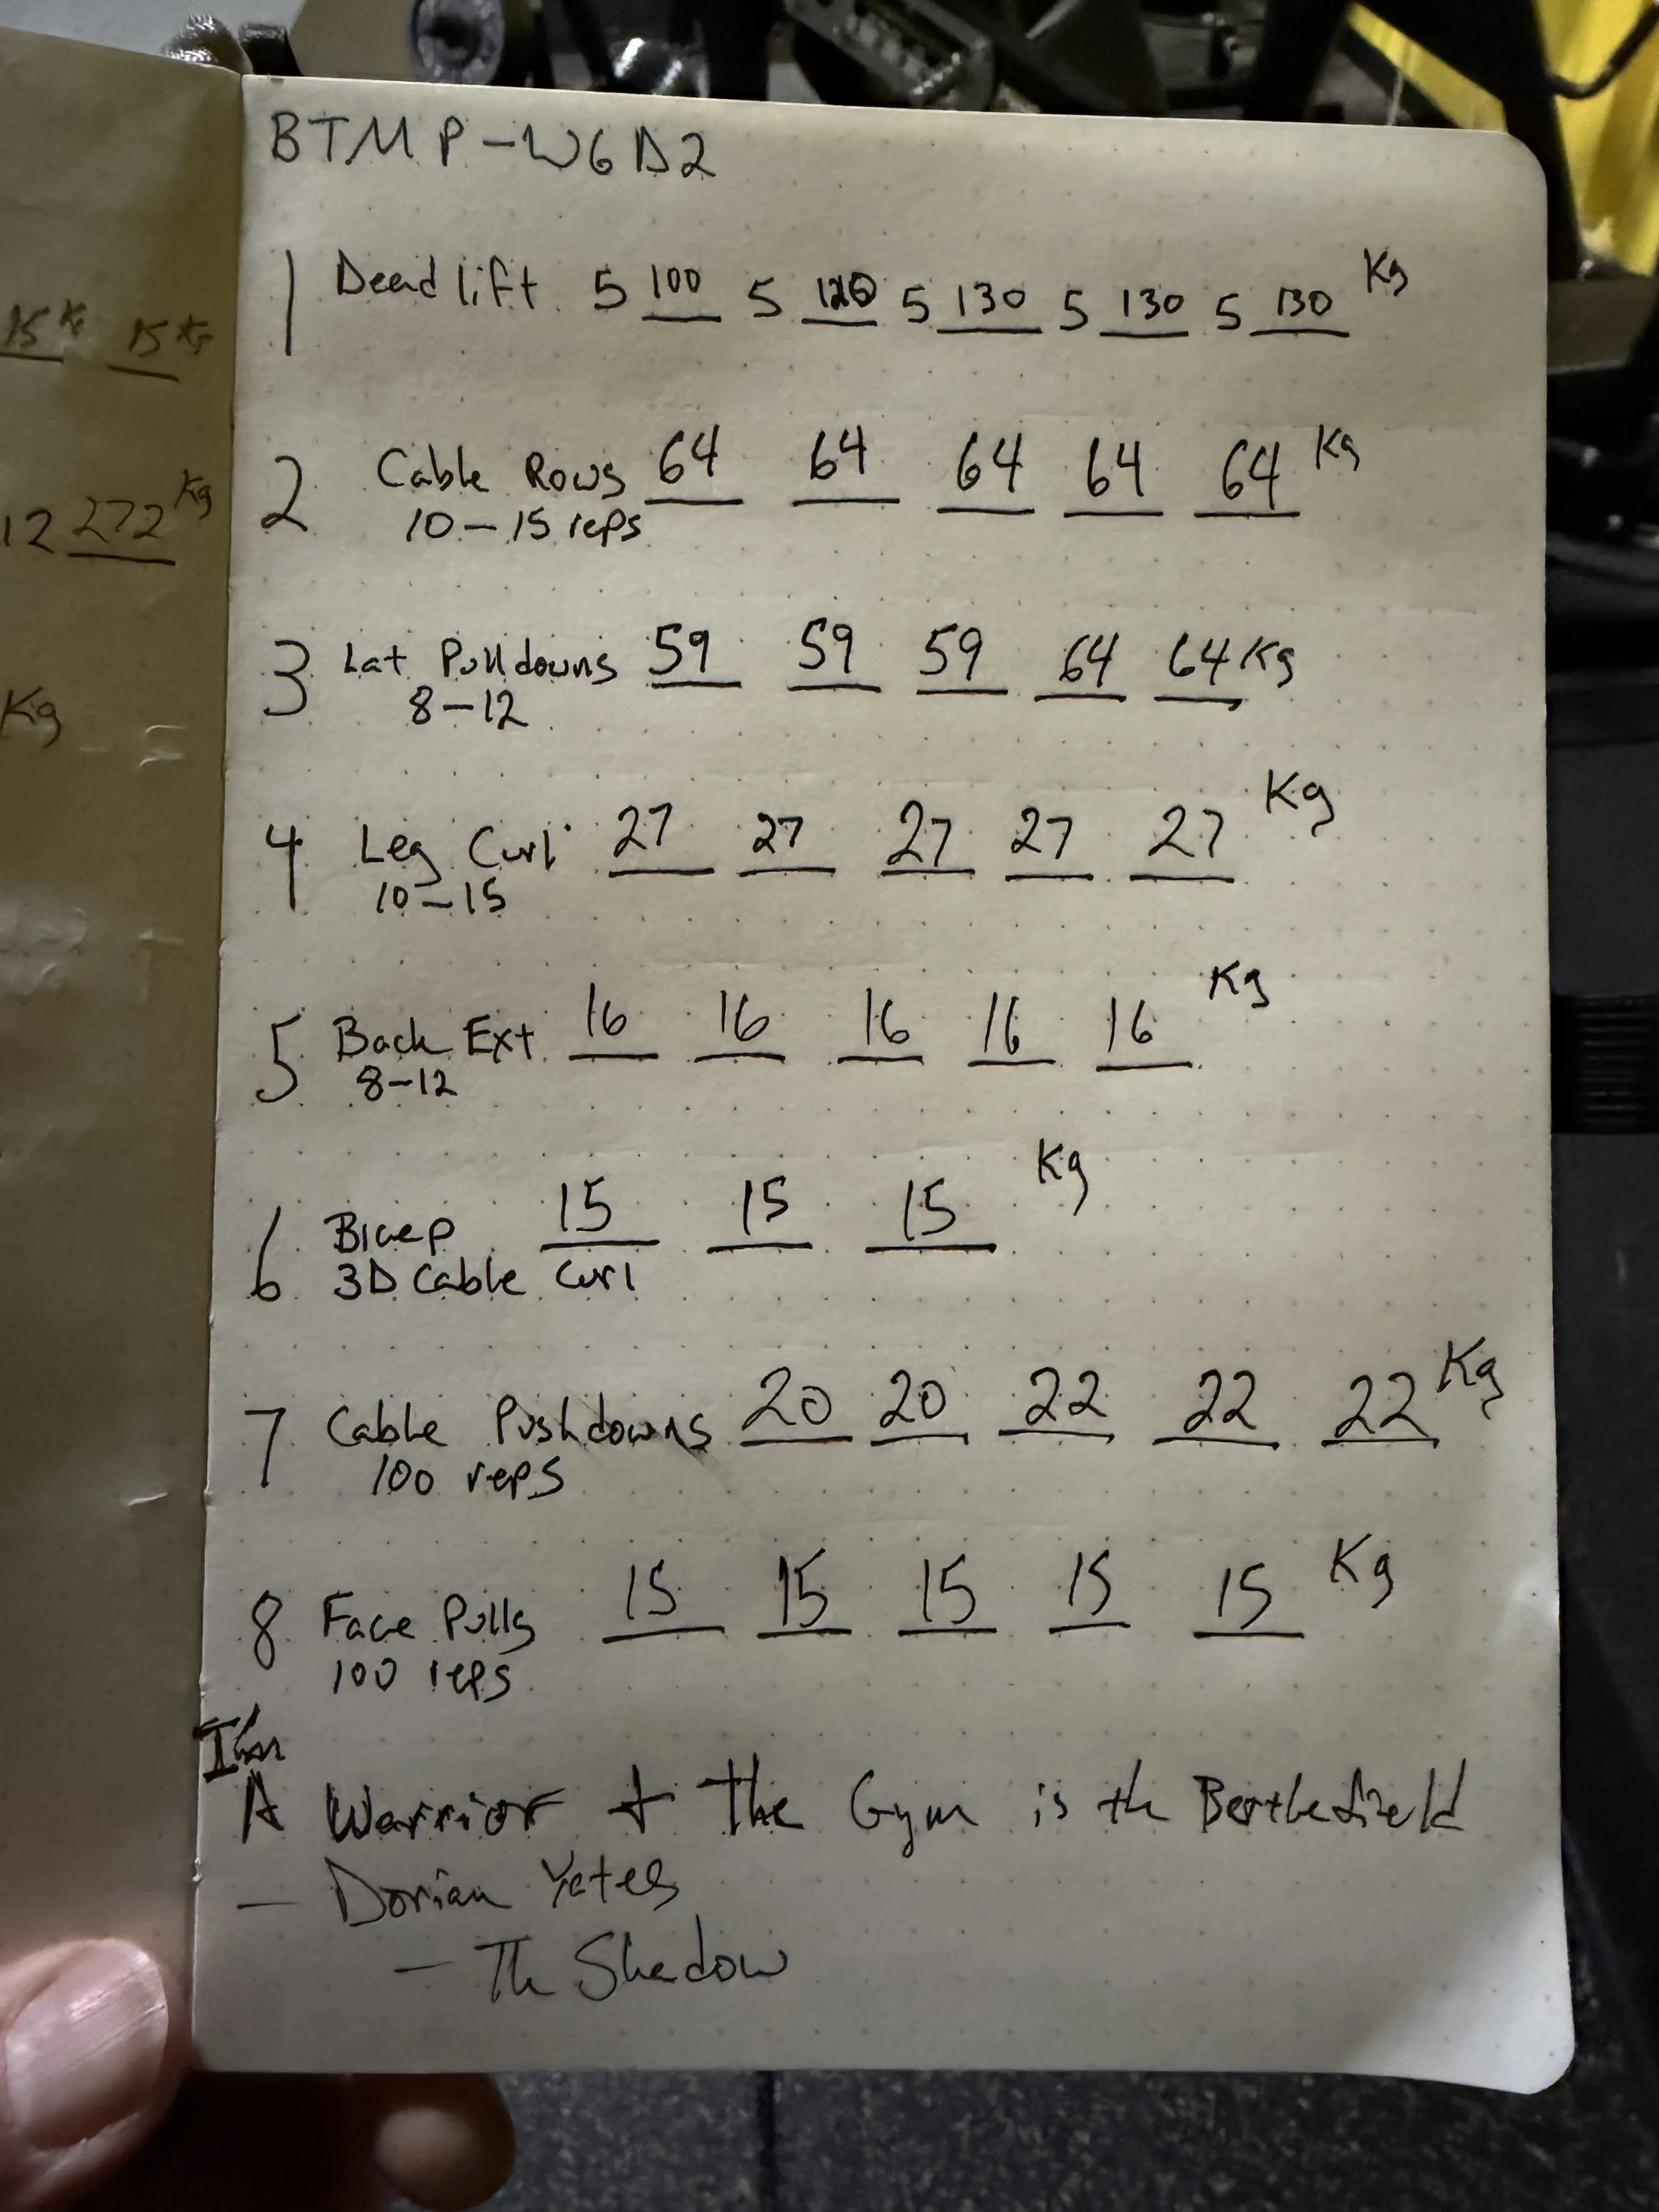 15 Kg 15 Kg
12 272 Kg
Kg
BTMP-W6D2
1 Deadlift 5 100 5 5 130 5 130 5 130 Kg
2 Cable Rows 64 64 64 64 64 Kg
10-15 reps
3 Lat Pulldowns 59 59 59 64 64 Kg
8-12
4 Leg Curl 27 27 27 27 27 Kg
10-15
5 Back Ext 16 16 16 16 16 Kg
8-12
6 Bicep 15 15 15 Kg
3D Cable Curl
7 Cable Pushdowns 20 20 22 22 22 Kg
100 reps
8 Face Pulls 15 15 15 15 15 Kg
100 reps
I'm
A Warrior + The Gym is th Battlefield
- Dorian Yates
- Th Shadow